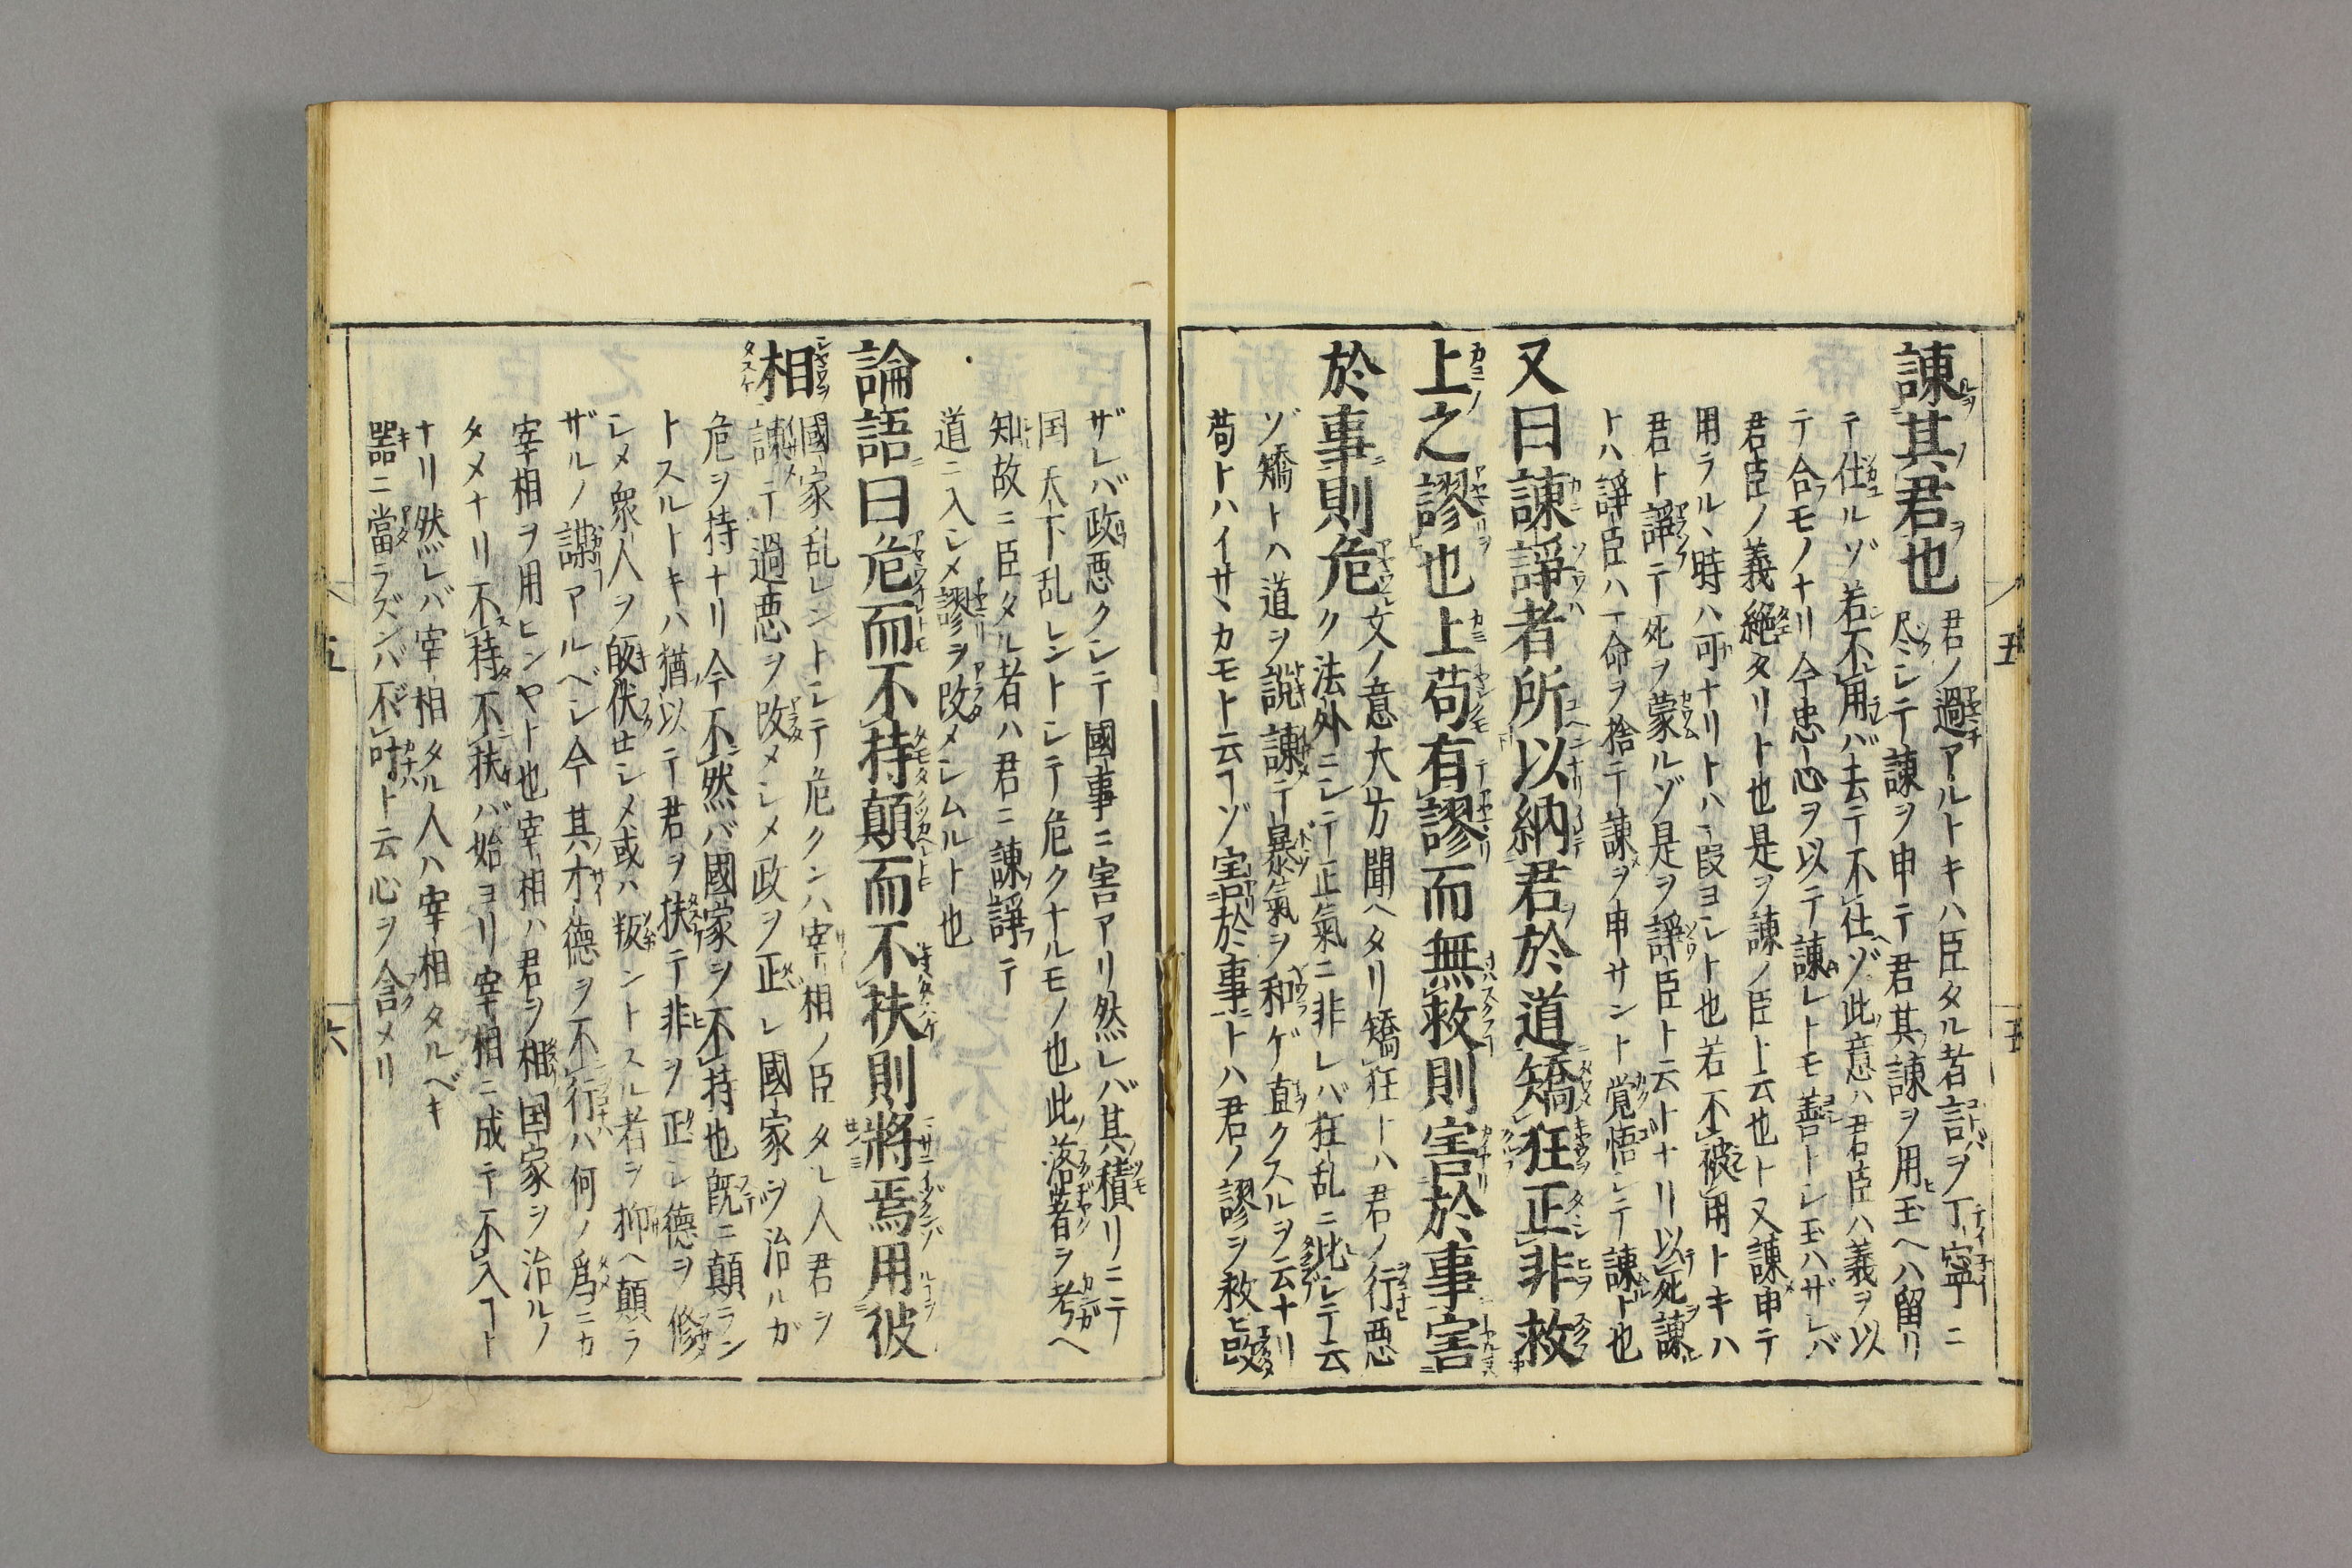 諫其君也
君ノ過アルトキハ臣タル者言ヲ丁寧ニ
尽シテ諫ヲ申テ君其諫ヲ用玉ヘハ留リ
テ仕ルゾ若不用バ去テ不仕ゾ此意ハ君臣ハ義ヲ以
テ合モノナリ今忠心ヲ以テ諫レトモ善トシ玉ハザレバ
君臣ノ義絶タリト也是ヲ諫ノ臣ト云也ト又諫申テ
用ラルヽ時ハ可ナリトハ段ヨシト也若不被用トキハ
君ト諍テ死ヲ蒙ルゾ是ヲ諍臣ト云ナリ以死諫
トハ諍臣ハ一命ヲ捨テ諫ヲ申サント覚悟シテ諫ト也
又曰諫諍者所以納君於道矯狂正非救
上之謬也上苟有謬而無救則害於事害
於事則危
文ノ意大方聞ヘタリ矯狂トハ君ノ行悪
ク法外ニシテ正氣ニ非レバ狂乱ニ比シテ云
ゾ矯トハ道ヲ説諫テ暴氣ヲ和ゲ直クスルヲ云ナリ
苟トハイサヽカモト云ヿゾ害於事トハ君ノ謬ヲ救ヒ改
ザレバ政悪クシテ國事ニ害アリ然レバ其積リニテ
国天下乱レントシテ危クナルモノ也此落着ヲ考ヘ
知故ニ臣タル者ハ君ニ諫諍テ
道ニ入シメ謬ヲ改メシムルト也
論語曰危而不持顛而不扶則將焉用彼
相
國家乱レントシテ危クンハ宰相ノ臣タル人君ヲ
諫テ過悪ヲ改メシメ政ヲ正シ國家ヲ治ルガ
危ヲ持ナリ今不然バ國家ヲ不持也既ニ顛ラン
トスルトキハ猶以テ君ヲ扶テ非ヲ正シ德ヲ修
シメ衆人ヲ皈伏セシメ或ハ叛ントスル者ヲ抑ヘ顛ラ
ザルノ謀アルベシ今其才德ヲ不行ハ何ノ爲ニカ
宰相ヲ用ヒンヤト也宰相ハ君ヲ相国家ヲ治ルノ
タメナリ不持不扶バ始ヨリ宰相ニ成テ不入ヿト
ナリ然レバ宰相タル人ハ宰相タルベキ
器ニ當ラズンバ不叶ト云心ヲ含メリ
五
五
五
六